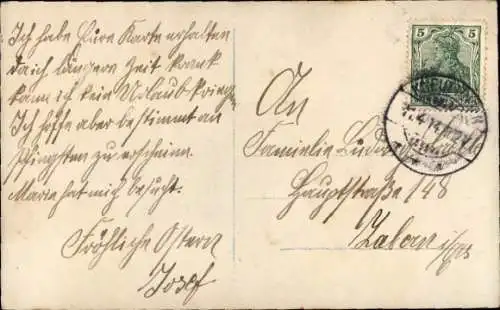 Ich habe Eure Karte erhalten
da ich längere Zeit krank
kann ich kein Urlaub kriegen
Ich hoffe aber bestimmt an
Pfingsten zu erscheinen.
Marie hat mich besucht.
Fröhliche Ostern
Josef
5 5
An
Familie
Hauptstraße 148
Zabern i/Els